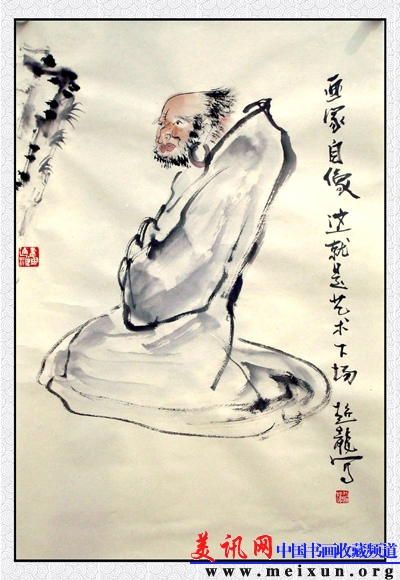 画家自像 这就是艺术下场 赵龍写
美讯网 中国书画收藏频道
www.meixun.org